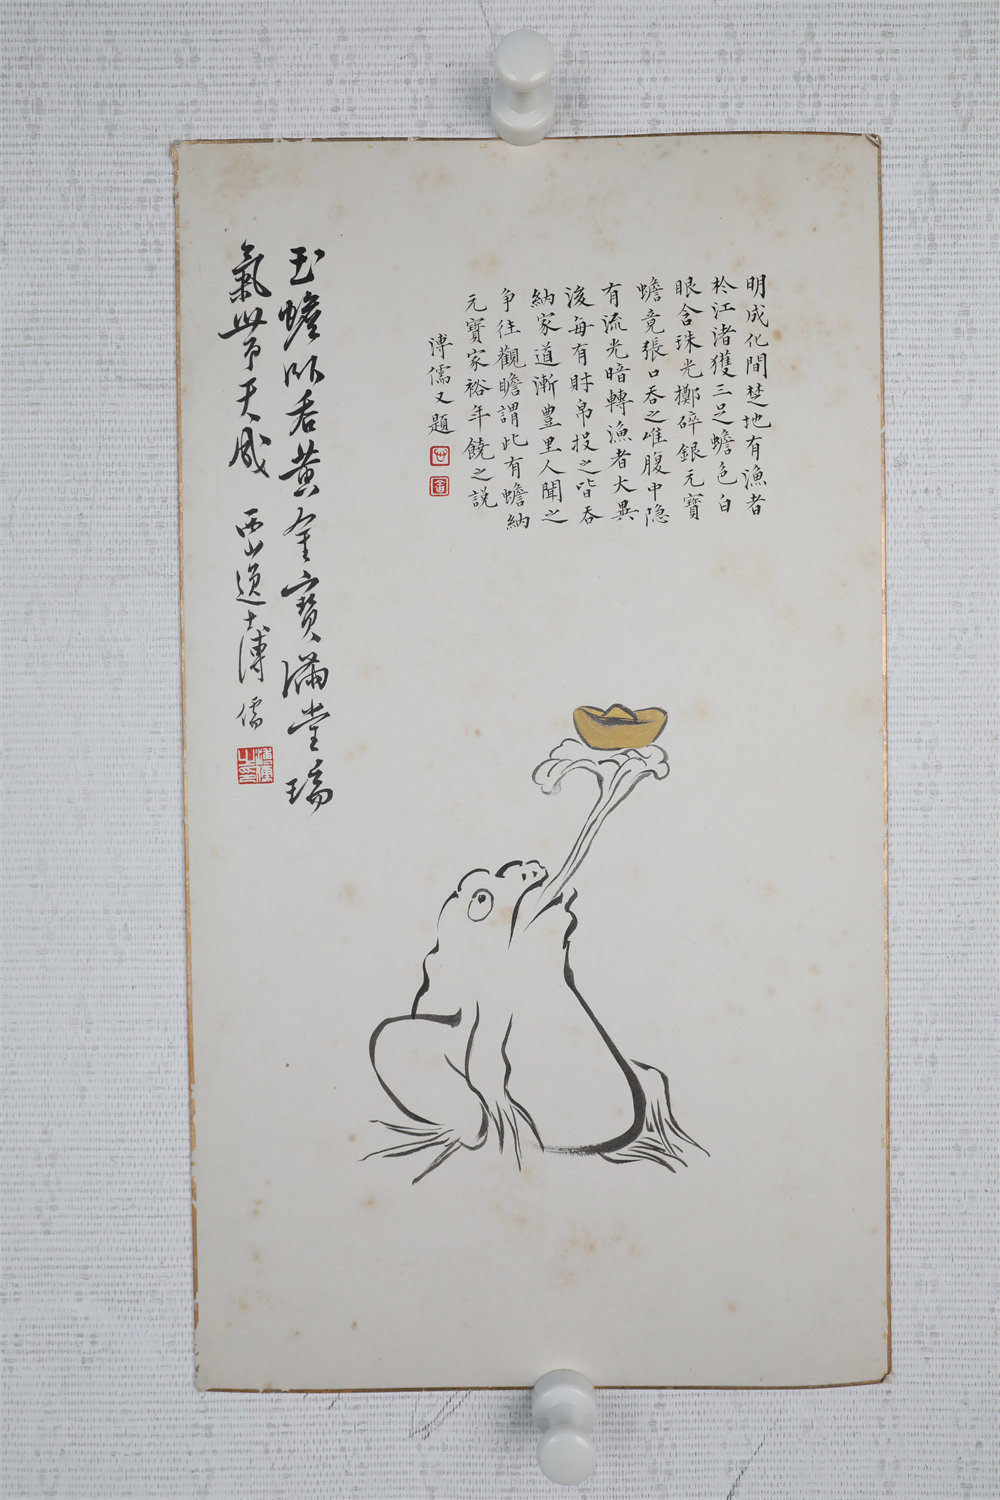 明成化間楚地有漁者
於江渚獲三足蟾色白
眼含珠光擲碎銀元寶
蟾竟張口吞之唯腹中隐
有流光暗轉漁者大異
後每有財帛投之皆吞
納家道漸豐里人聞之
争往觀瞻謂此有蟾納
元寶家裕年饒之説
溥儒又題
玉蟾吞黃金寶滿堂瑞
氣帶天成 西山逸士溥儒